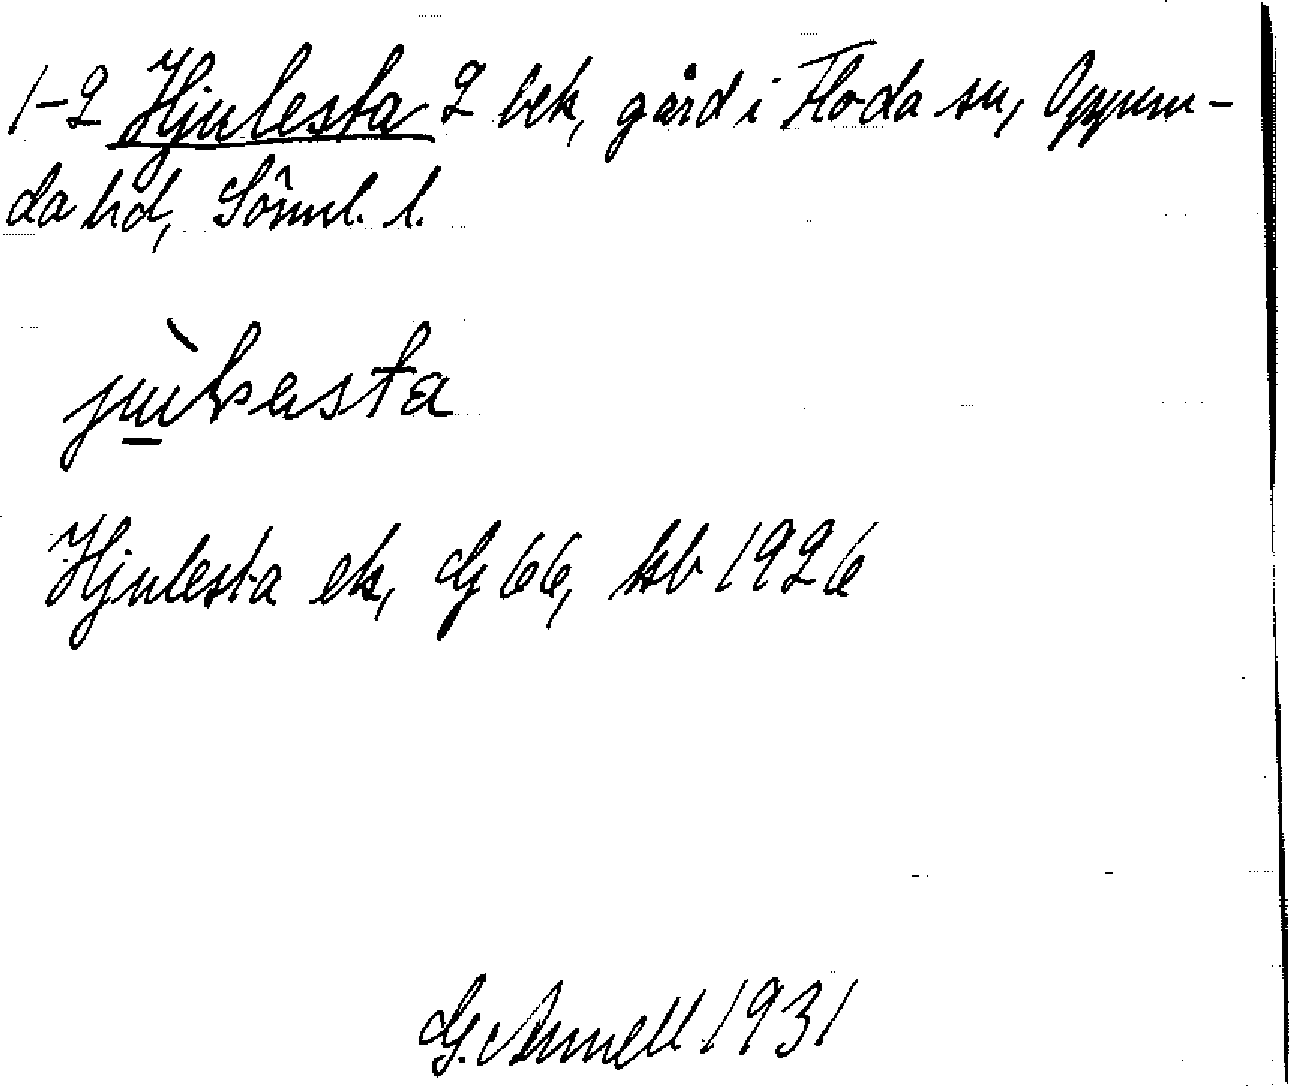 1-2 Hjulesta 2 bek, gård i Floda sn, Oppun-
da hd, Söml. l.
Hjulesta ek, Gj 66, kb 1926
G. Annell 1931